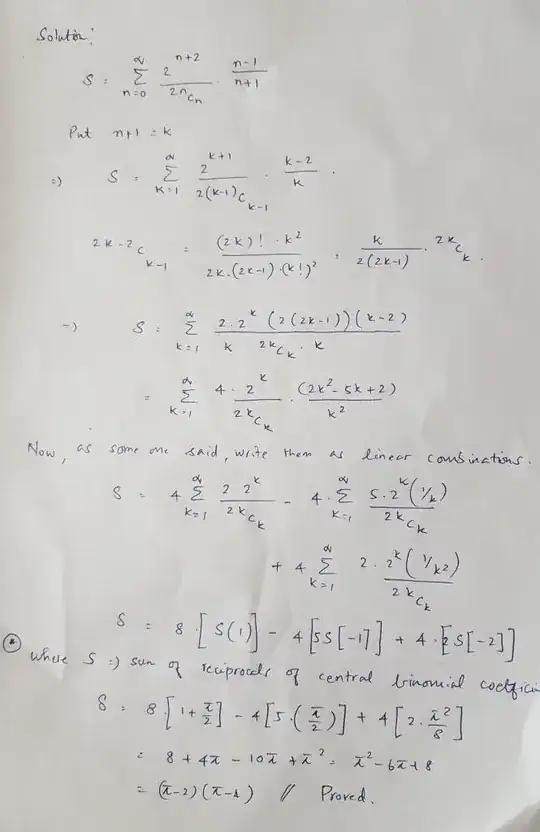 Solution:
S = ∞ Σ n=0 2^(n+2) / 2n C n · (n-1)/(n+1)
Put n+1 = k
=) S = ∞ Σ k=1 2^(k+1) / 2(k-1) C k-1 · (k-2)/k .
2k-2 C k-1 = (2k)! · k² / 2k·(2k-1)·(k!)² = k / 2(2k-1) · 2k C k .
-) S = ∞ Σ k=1 2·2^k (2(2k-1))(k-2) / k 2k C k · k
= ∞ Σ k=1 4·2^k / 2k C k · (2k²-5k+2) / k²
Now, as some one said, write them as linear combinations.
S = 4 ∞ Σ k=1 2 2^k / 2k C k - 4· ∞ Σ k=1 5·2^k (1/k) / 2k C k
+ 4 ∞ Σ k=1 2·2^k (1/k²) / 2k C k
S = 8·[S(1)] - 4[5S[-1]] + 4·[2S[-2]]
* where S =) sum of reciprocals of central binomial coeffici
S = 8·[1+π/2] - 4[5·(π/2)] + 4[2·π²/8]
= 8 + 4π - 10π + π² = π²-6π+8
= (π-2)(π-4) // Proved.